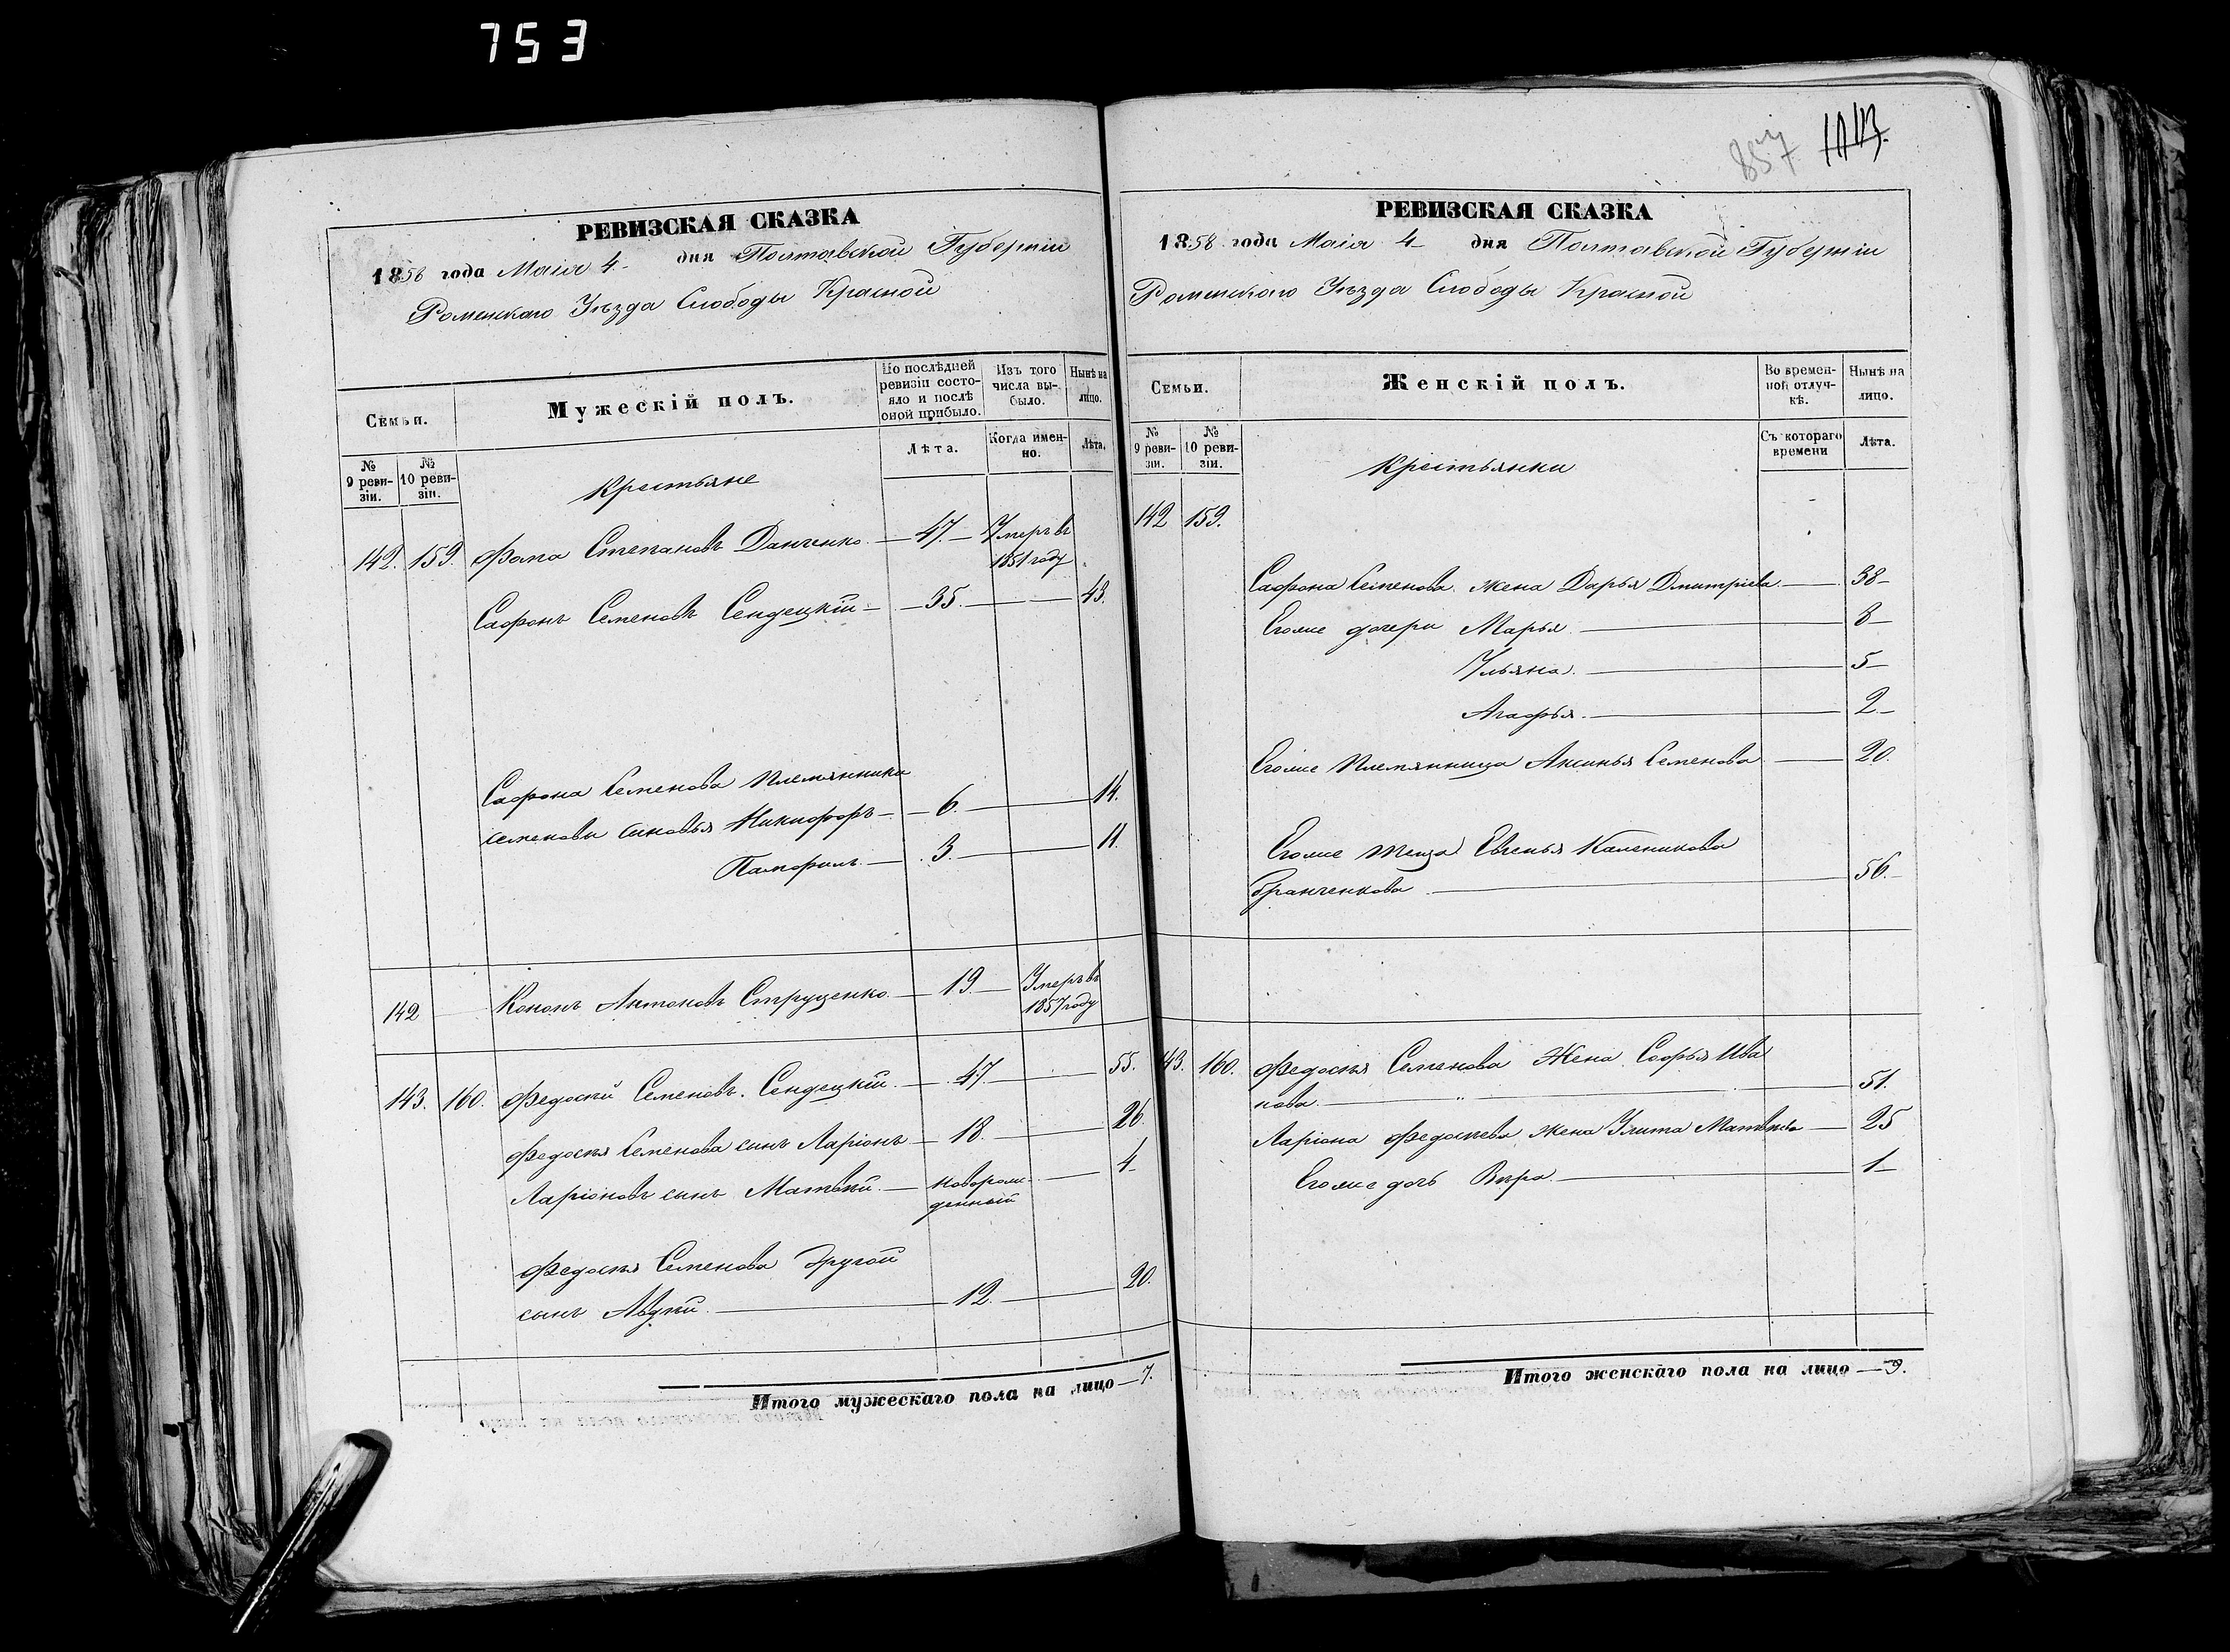 753
РЕВИЗСКАЯ СКАЗКА
1858 года Маія 4 дня Полтавской Губерніи
Роменскаго Уѣзда Слободы Красной
Семьи.
Мужескій полъ.
По послѣдней ревизіи состояло и послѣ оной прибыло.
Изъ того числа выбыло.
Нынѣ на лицо.
№ 9 ревизіи.
№ 10 ревизіи.
Крестьяне
Лѣта.
Когда именно.
Лѣта.
142. 159. Фома Степановъ Данченко — 47. — Умеръ въ
1851 году
Сафонъ Семеновъ Сендецкій — 35. — 43.
Сафона Семенова племянники
Семеновы сыновья Никифоръ — 6. — 14.
Памфилъ — 3. — 11.
142 Кононъ Антоновъ Струценко — 19. — Умеръ въ
1857 году
143. 160. Федосѣй Семеновъ Сендецкій — 47 — 55.
Федосѣя Семенова сынъ Ларіонъ — 18. — 26
Ларіоновъ сынъ Матвѣй — новорож — 4
денный
Федосѣя Семенова другой
сынъ Авдѣй — 12. — 20.
Итого мужескаго пола на лицо — 7.
857
РЕВИЗСКАЯ СКАЗКА
1858 года Маія 4 дня Полтавской Губерніи
Роменскаго Уѣзда Слободы Красной
Семьи.
Женскій полъ.
Во временной отлучкѣ.
Нынѣ на лицо.
№ 9 ревизіи.
№ 10 ревизіи.
Крестьянки
Съ котораго времени
Лѣта.
142 159.
Сафона Семенова жена Дарья Дмитріева — 38
Егоже дочери Марья — 8
Ульяна — 5
Агафья — 2
Егоже племянница Аксинья Семенова — 20.
Егоже теща Евгенья Каленикова
— 56.
143. 160. Федосѣя Семенова жена Софья Ива
нова — 51.
Ларіона Федосѣева жена Улита Матвѣева — 25
Егоже дочь Вѣра — 1
Итого женскаго пола на лицо — 9.